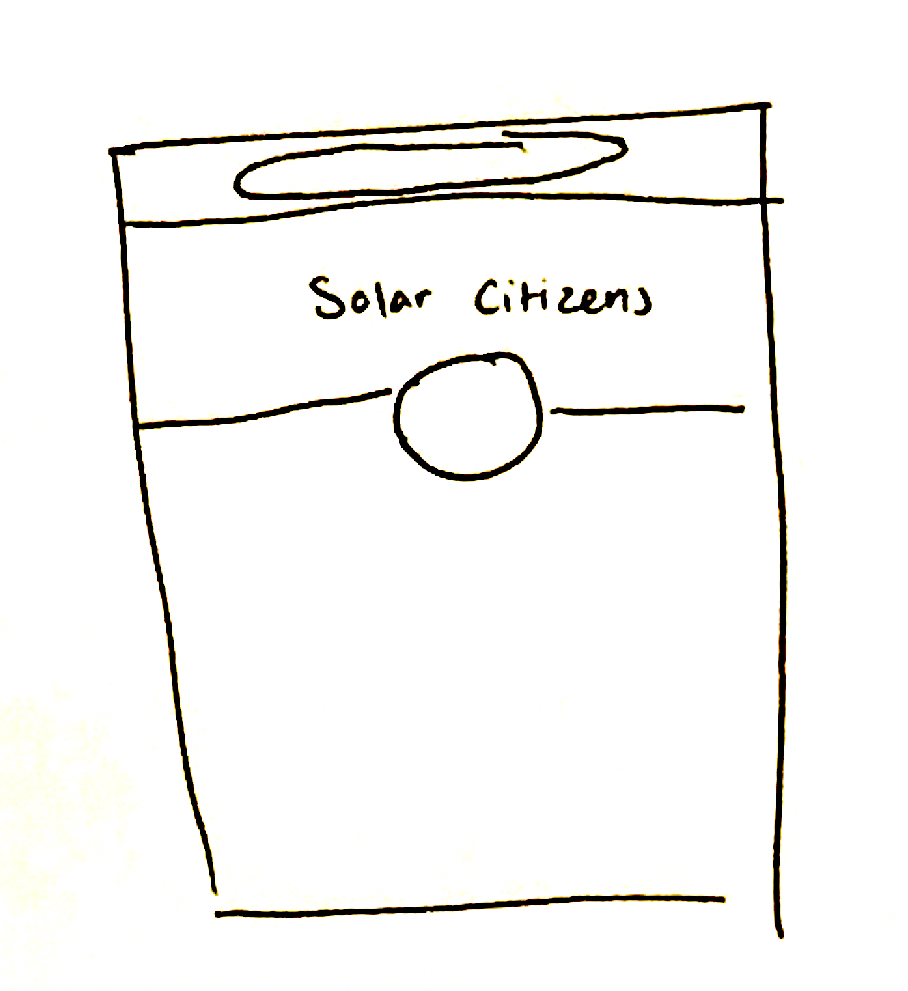 Solar Citizens